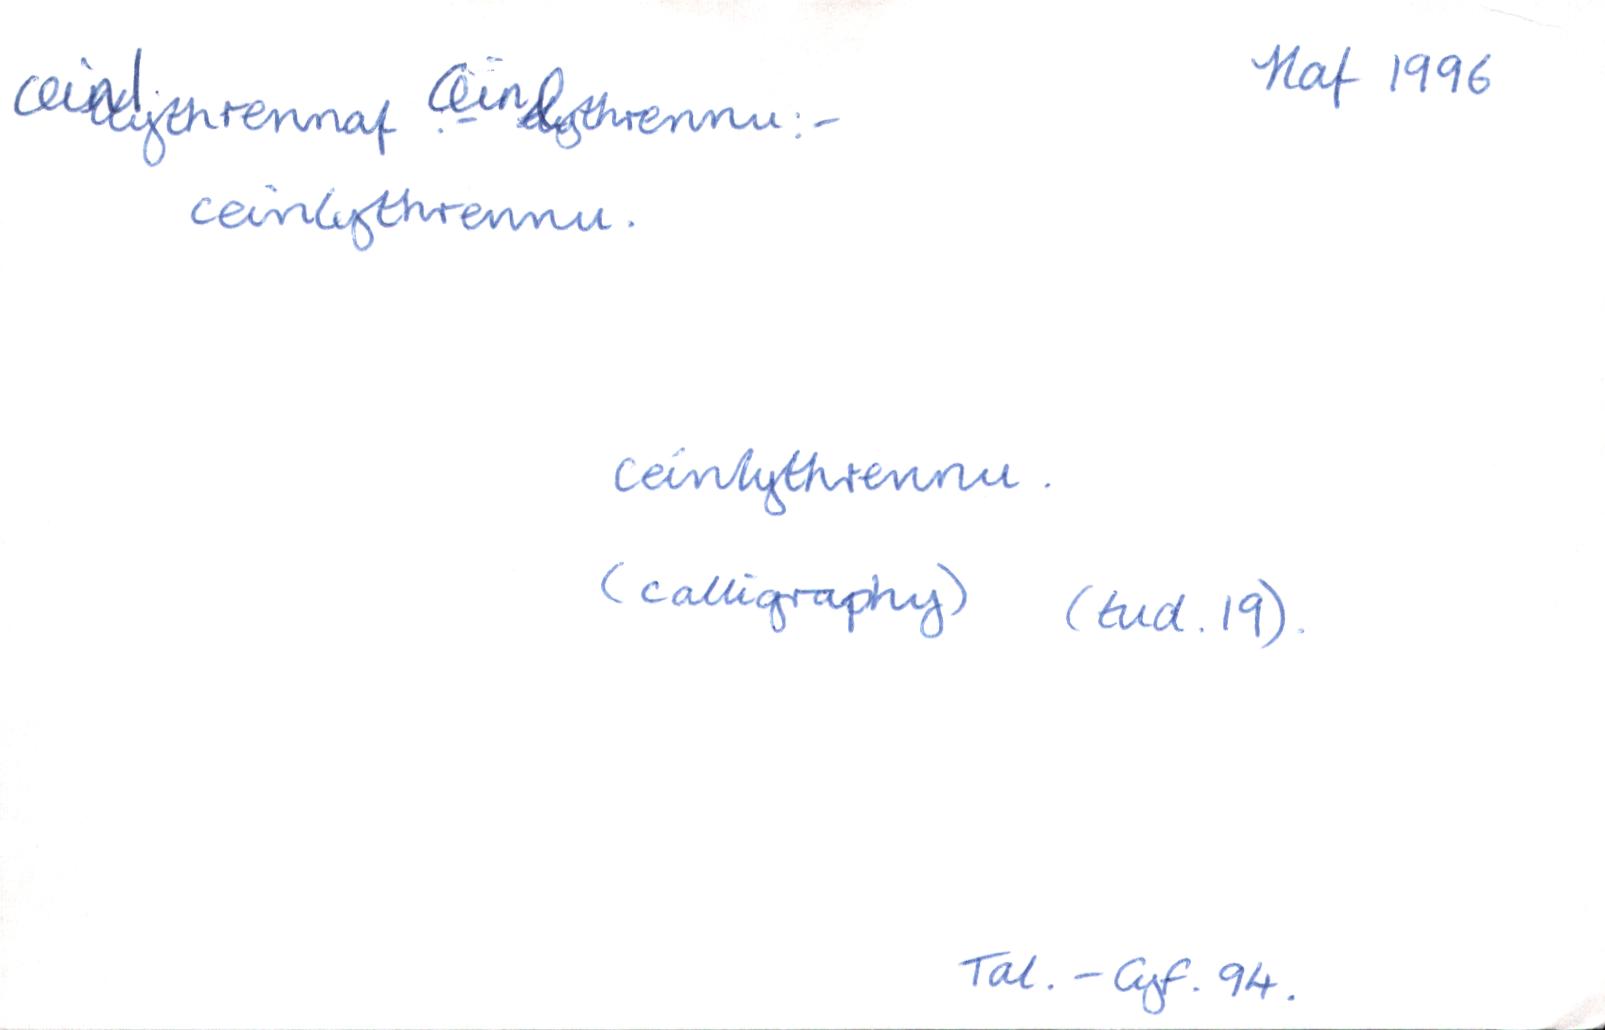 ceinlythrennaf ceinlythrennu:-
Haf 1996
ceinlythrennu.
ceinlythrennu.
(calligraphy) (tud. 19).
Tal. - Cyf. 94.